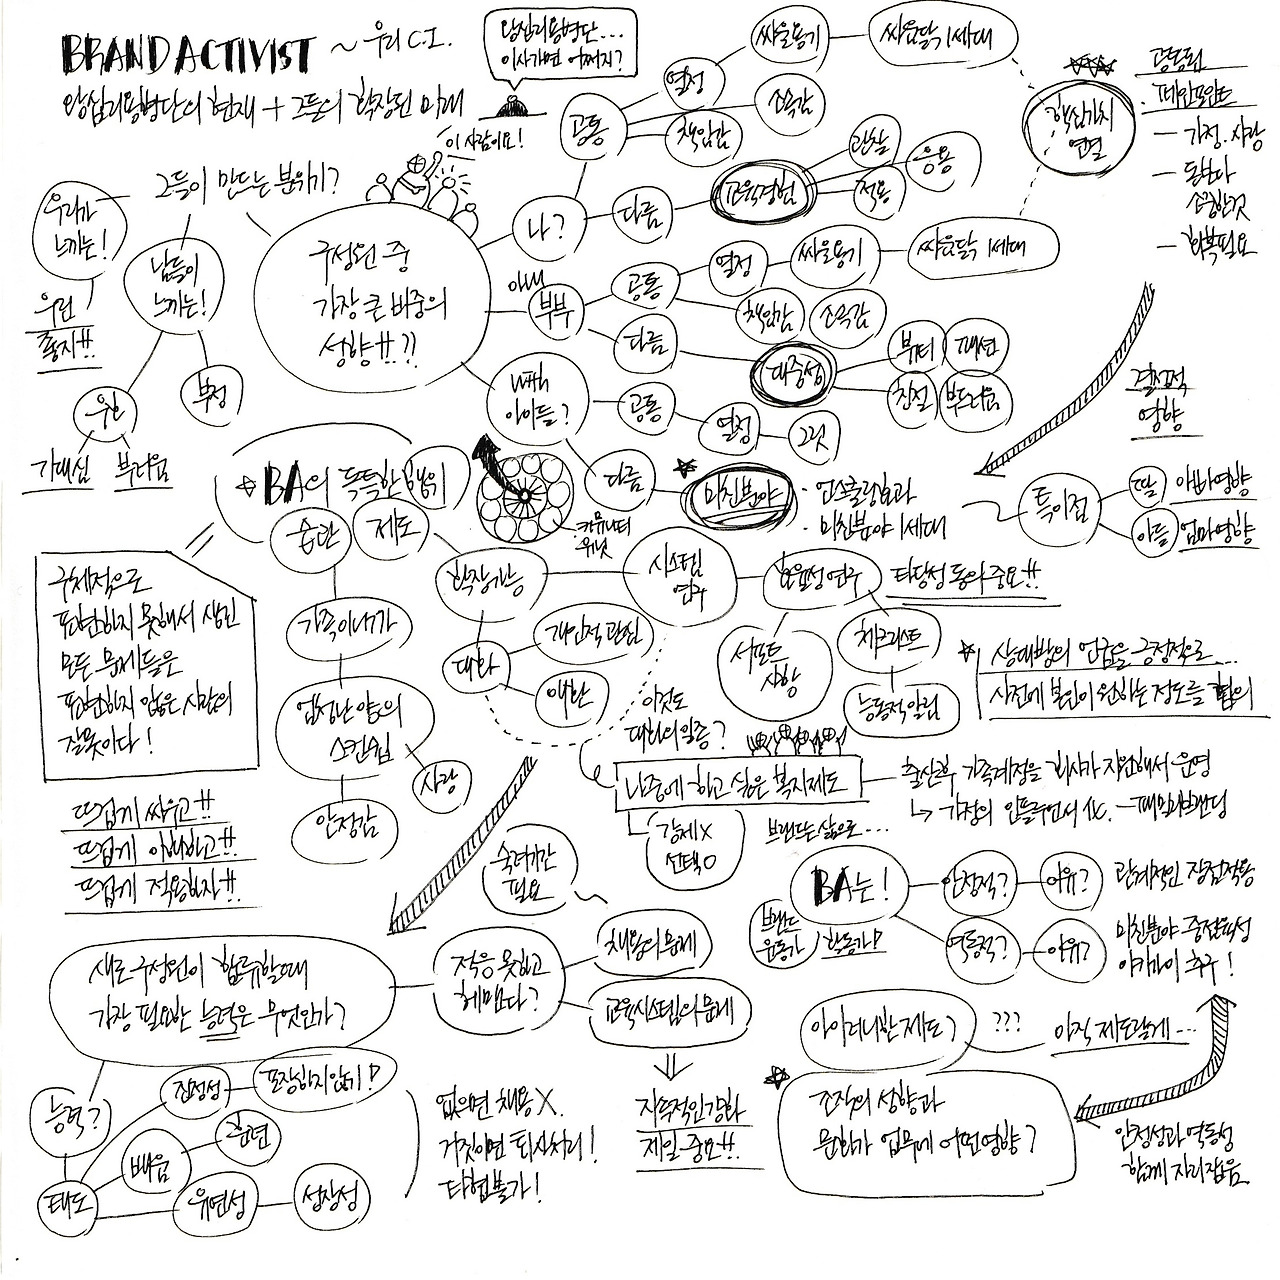 BRAND ACTIVIST ~ 우리 C.I.
왕십리용병단의 현재 + 그들의 확장된 미래
왕십리용병단...
이사가면 어쩌지?
이 사람이요!
그들이 만드는 분위기?
우리가
느끼는!
우린
좋지!!
남들이
느끼는!
우한
부정
기대심
부러움
구성원 중
가장 큰 비중의
성향!!??
나?
공통
열정
싸울용기
싸움닭 1세대
소속감
책임감
다름
교육경험
관찰
응용
적용
핵심가치
연결
공동된
페인포인트
- 가정. 사랑
- 돈보다
소중한것
- 행복필요
아내
부부
공통
열정
싸울용기
싸움닭 1세대
책임감
소속감
다름
대중성
뷰티
패션
친절
부드러움
with
아이들?
공통
열정
그릿
다름
미친분야
· 언스쿨링효과
· 미친분야 1세대
결정적
영향
특이점
딸
아빠영향
아들
엄마영향
BA의 독특한 행위
습관
제도
커뮤니티
위닛
구체적으로
표현하지 못해서 생긴
모든 문제들은
표현하지 않은 사람의
잘못이다!
뜨겁게 싸우고!!
뜨겁게 이해하고!!
뜨겁게 적용하자!!
가족이니까
엄청난 양의
스킨쉽
사랑
안정감
확장가능
대화
개인적 관심
애환
시스템
연구
효율성 연구
타당성 동의 중요!!
서포트
사항
체크리스트
능동적 알림
상대방의 언급을 긍정적으로...
사전에 본인이 원하는 정도를 협의
이것도
대화의 일종?
나중에 하고 싶은 복지제도
출산후 가족계정을 회사가 지원해서 운영
↳ 가정의 인플루언서化. - 패밀리브랜딩
강제 X
선택 O
브랜드는 삶으로...
BA는!
브랜드
운동가
활동가!
안정적?
이유?
관계적인 장점적용
역동적?
이유?
미친분야 중점육성
이카이 추구!
숙려기간
필요
새로 구성원이 합류할때
가장 필요한 능력은 무엇인가?
적응 못하고
헤맨다?
채용의 문제
교육시스템의 문제
지속적인 강화
제일 중요!!
능력?
태도
진정성
포장하지 않기!
배움
유연성
성장성
없으면 채용 X.
거짓이면 퇴사처리!
타협불가!
아이러니한 제도?
???
아직 제도랄게...
조직의 성향과
문화가 업무에 어떤영향?
안정성과 역동성
함께 자리잡음